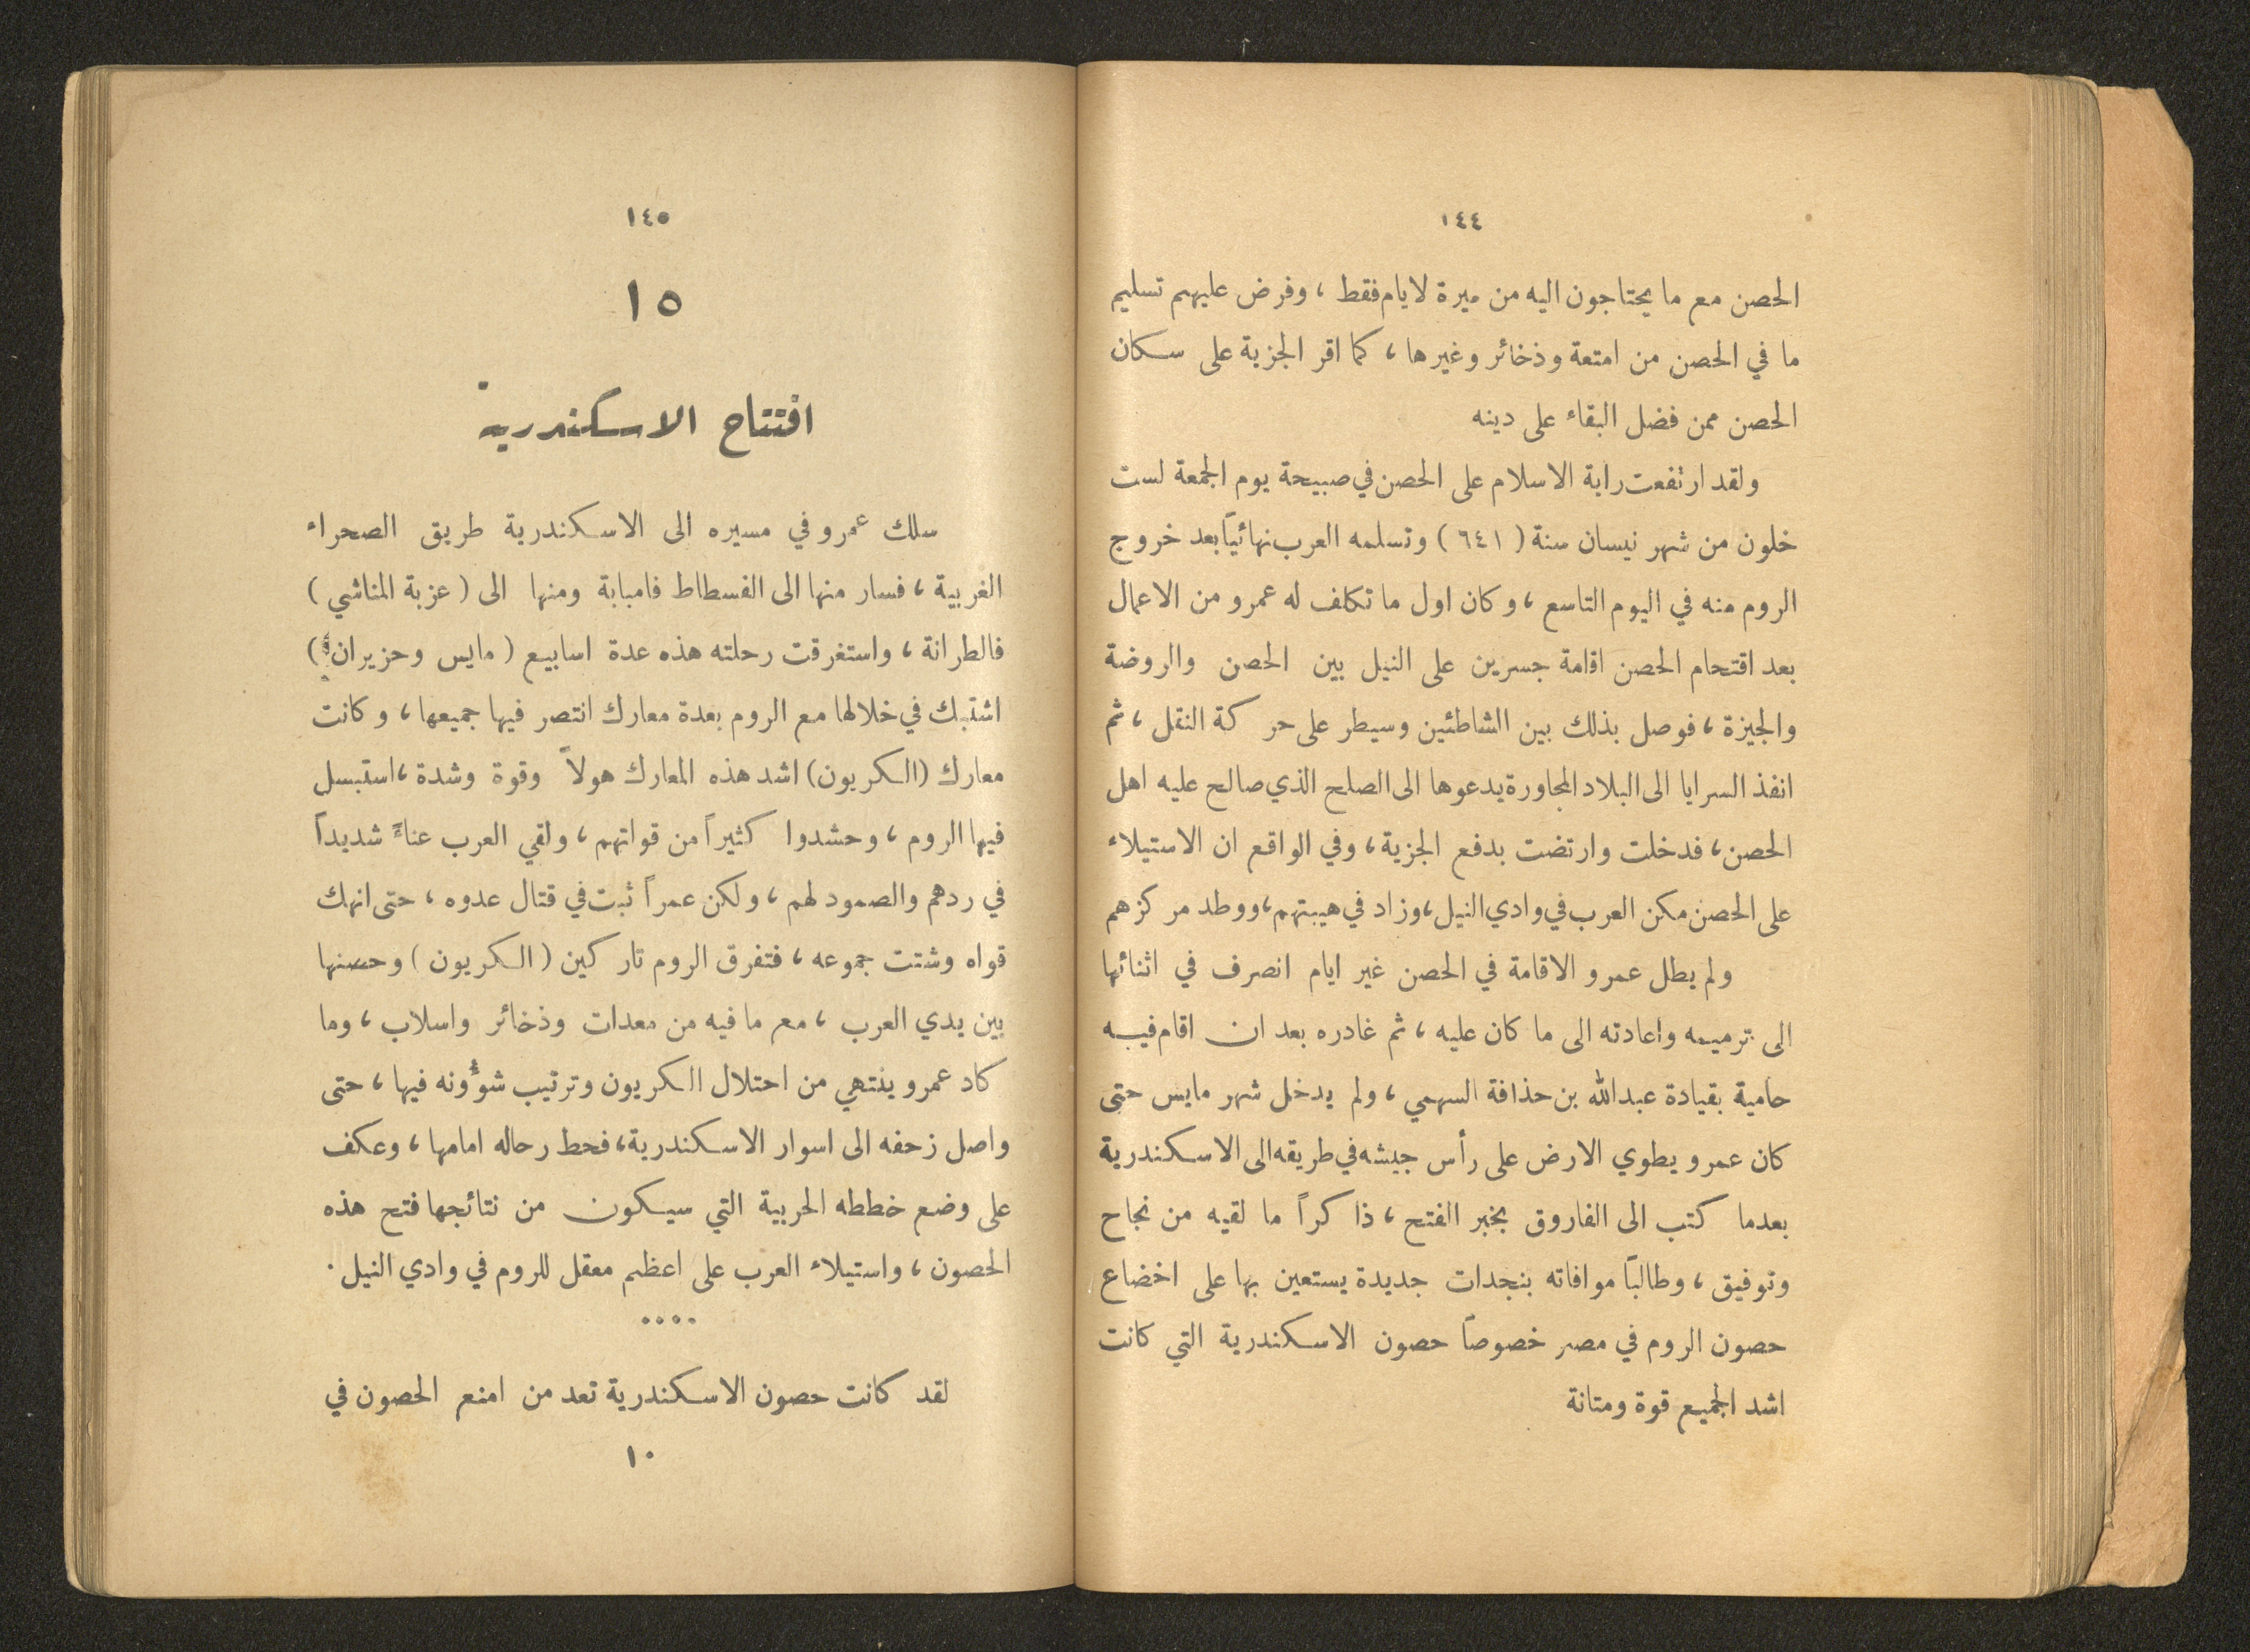 ١٤٤
الحصن مع ما يحتاجون اليه من ميرة لايام فقط ، وفرض عليهم تسليم
ما في الحصن من امتعة وذخائر وغيرها ، كما اقر الجزية على سكان
الحصن ممن فضل البقاء على دينه
ولقد ارتفعت راية الاسلام على الحصن في صبيحة يوم الجمعة لست
خلون من شهر نيسان سنة ( ٦٤١ ) وتسلمه العرب نهائياً بعد خروج
الروم منه في اليوم التاسع ، وكان اول ما تكلف له عمرو من الاعمال
بعد اقتحام الحصن اقامة جسرين على النيل بين الحصن والروضة
والجيزة ، فوصل بذلك بين الشاطئين وسيطر على حركة النقل ، ثم
انفذ السرايا الى البلاد المجاورة يدعوها الى الصلح الذي صالح عليه اهل
الحصن ، فدخلت وارتضت بدفع الجزية ، وفي الواقع ان الاستيلاء
على الحصن مكن العرب في وادي النيل ، وزاد في هيبتهم ، ووطد مركزهم
ولم يطل عمرو الاقامة في الحصن غير ايام انصرف في اثنائها
الى ترميمه واعادته الى ما كان عليه ، ثم غادره بعد ان اقام فيه
حامية بقيادة عبدالله بن حذافة السهمي ، ولم يدخل شهر مايس حتى
كان عمرو يطوي الارض على رأس جيشه في طريقه الى الاسكندرية
بعدما كتب الى الفاروق بخبر الفتح ، ذاكراً ما لقيه من نجاح
وتوفيق ، وطالباً موافاته بنجدات جديدة يستعين بها على اخضاع
حصون الروم في مصر خصوصاً حصون الاسكندرية التي كانت
اشد الجميع قوة ومتانة
١٤٥
١٥
افتتاح الاسكندرية
سلك عمرو في مسيره الى الاسكندرية طريق الصحراء
الغربية ، فسار منها الى الفسطاط فامبابة ومنها الى ( عزبة المناشي )
فالطرانة ، واستغرقت رحلته هذه عدة اسابيع ( مايس وحزيران )
اشتبك في خلالها مع الروم بعدة معارك انتصر فيها جميعها ، وكانت
معارك (الكريون) اشد هذه المعارك هولاً وقوة وشدة ، استبسل
فيها الروم ، وحشدوا كثيراً من قواتهم ، ولقي العرب عناءً شديداً
في ردهم والصمود لهم ، ولكن عمراً ثبت في قتال عدوه ، حتى انهك
قواه وشتت جموعه ، فتفرق الروم تاركين (الكريون) وحصنها
بين يدي العرب ، مع ما فيه من معدات وذخائر واسلاب ، وما
كاد عمرو ينتهي من احتلال الكريون وترتيب شؤونه فيها ، حتى
واصل زحفه الى اسوار الاسكندرية ، فحط رحاله امامها ، وعكف
على وضع خططه الحربية التي سيكون من نتائجها فتح هذه
الحصون ، واستيلاء العرب على اعظم معقل للروم في وادي النيل .
٠٠٠٠
لقد كانت حصون الاسكندرية تعد من امنع الحصون في
١٠